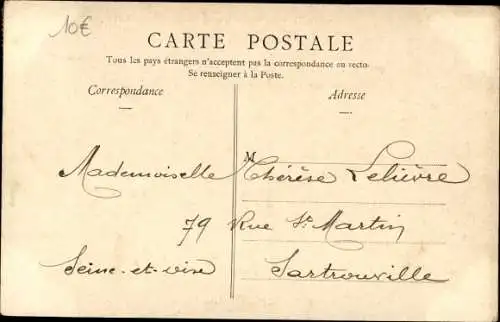 10€
CARTE POSTALE
Tous les pays étrangers n'acceptent pas la correspondance au recto.
Se renseigner à la Poste.
Correspondance
Adresse
M
Mademoiselle Thérèse Lelièvre
79 Rue St Martin
Seine-et-oise Sartrouville